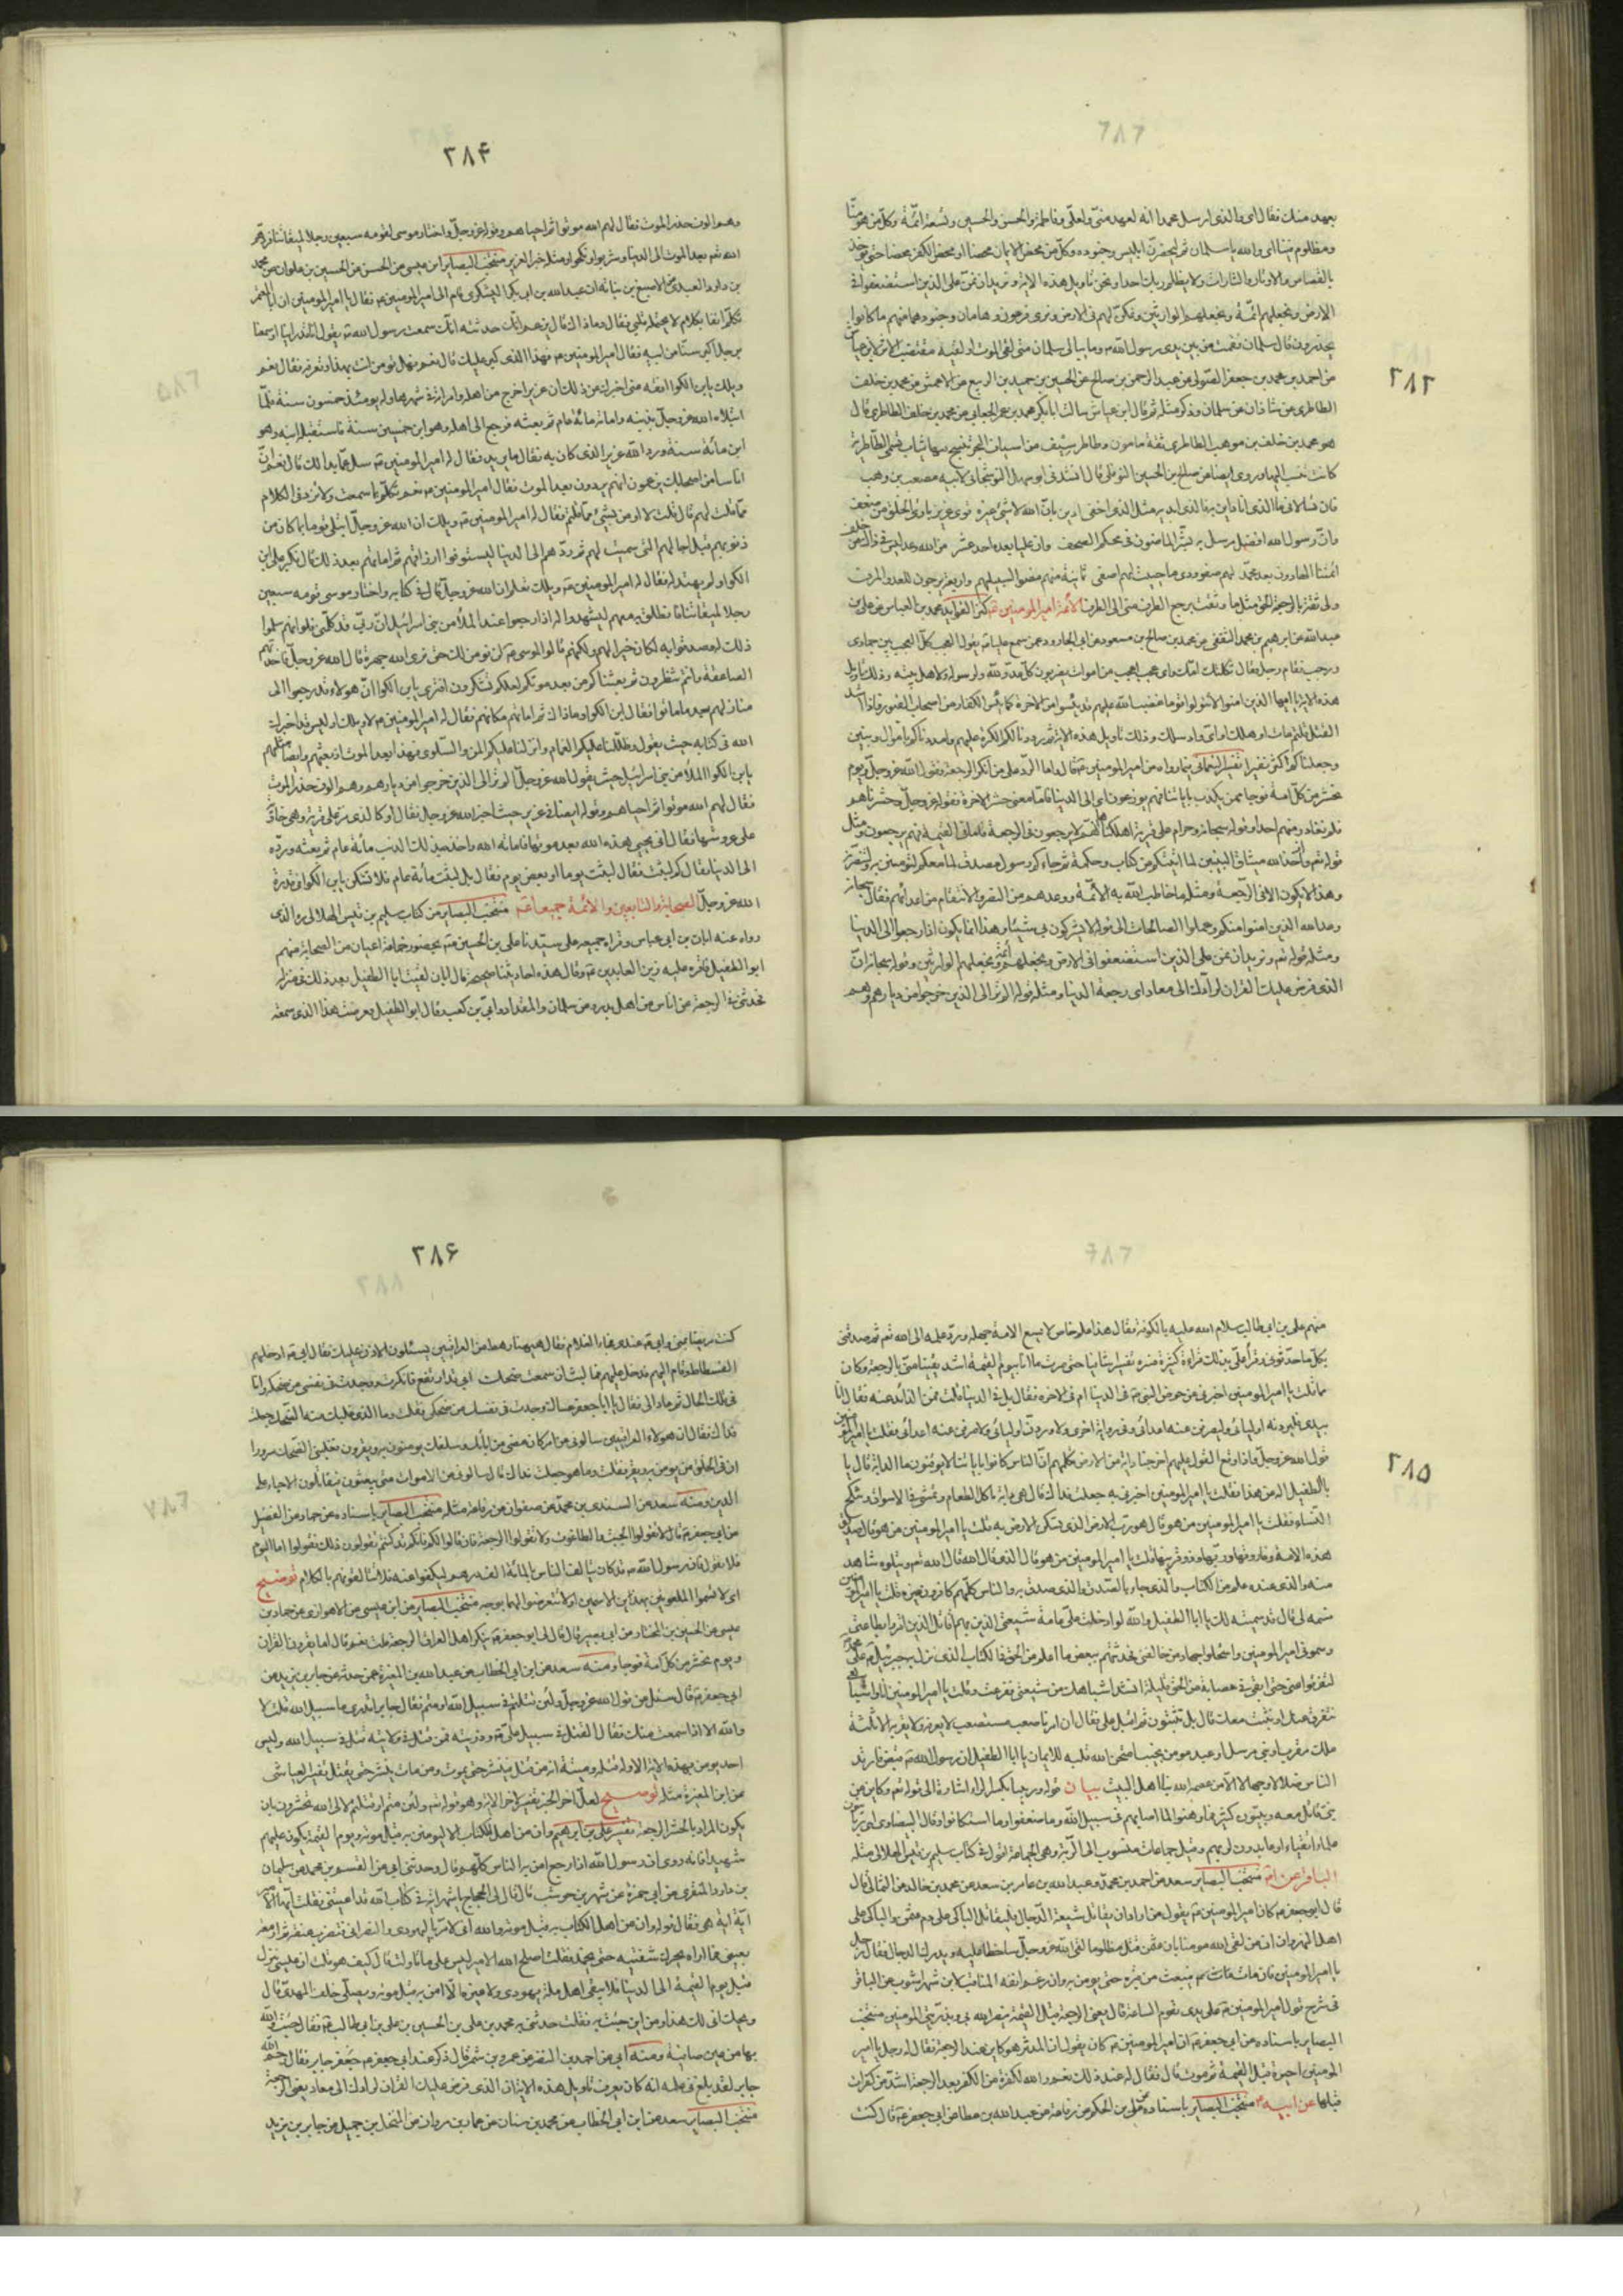 ۲۸۳
بعهد منك فقال اى والذى ارسل محمدا انه لعهد منى ولعلى وفاطمة والحسن والحسين وتسعة ائمة وكل من هو منا
ومظلوم فينا اى والله يا سلمان ثم ليحضرن ابليس وجنوده وكل من محض الايمان محضا او محض الكفر محضا حتى يؤخذ
بالقصاص والاوتار والثارات ولا يظلم ربك احدا ونحن تاويل هذه الاية ونريد ان نمن على الذين استضعفوا فى
الارض ونجعلهم ائمة ونجعلهم الوارثين ونمكن لهم فى الارض ونرى فرعون وهامان وجنودهما منهم ما كانوا
يحذرون قال سلمان فقمت من بين يدى رسول الله وما يبالى سلمان متى لقى الموت او لقيه مقتضب الاثر لابن عياش
عن احمد بن محمد بن جعفر الصولى عن عبد الرحمن بن صالح عن الحسين بن حميد بن الربيع عن الاعمش عن محمد بن خلف
الطاطرى عن شاذان عن سلمان وذكر مثله ثم قال ابن عياش سالت ابا بكر محمد بن عمر الجعابى عن محمد بن خلف الطاطرى قال
هو محمد بن خلف بن موهب الطاطرى ثقة مامون وطاطر سيف من اسياف البحر تنسج فيها ثياب تسمى الطاطرية
كانت تنسب اليها وروى ايضا عن صالح بن الحسين النوفلى قال انشدنى ابو سهل النوشجانى لابيه مصعب بن وهب
فان تسالانى ما الذى انا دائن به فالذى ابديه مثل الذى اخفى ادين بان الله لا شىء غيره قوى عزيز بارئ الخلق من ضعف
وان رسول الله افضل مرسل به بشر الماضون فى محكم الصحف وان عليا بعده احد عشر من الله وعد ليس فى ذاك من خلف
ائمتنا الهادون بعد محمد لهم صفو ودى ما حييت لهم اصفى ثمانية منهم مضوا لسبيلهم واربعة يرجون للعدد الموف
ولى ثقة بالرجعة الحق مثل ما وثقت برجع الطرف منى الى الطرف الائمة امير المؤمنين كنز الفوائد محمد بن العباس عن على بن
عبد الله عن ابرهيم بن محمد الثقفى عن محمد بن صالح بن مسعود عن ابى الجارود عمن سمع عليا يقول العجب كل العجب بين جمادى
ورجب فقام رجل فقال
هذه الاية يا ايها الذين امنوا لا تتولوا قوما غضب الله عليهم قد يئسوا من الاخرة كما يئس الكفار من اصحاب القبور فاذا اشتد
القتل قلتم مات او هلك او اى واد سلك وذلك تاويل هذه الاية ثم رددنا لكم الكرة عليهم وامددناكم باموال وبنين
وجعلناكم اكثر نفيرا تفسير النعمانى فيما رواه عن امير المؤمنين قال واما الرد على من انكر الرجعة فقول الله عز وجل ويوم
نحشر من كل امة فوجا ممن يكذب باياتنا فهم يوزعون اى الى الدنيا فاما معنى حشر الاخرة فقوله عز وجل وحشرناهم
فلم نغادر منهم احدا وقوله سبحانه وحرام على قرية اهلكناها انهم لا يرجعون فى الرجعة فاما فى القيمة فهم يرجعون ومثل
قوله تعم واذ اخذ الله ميثاق النبيين لما اتيتكم من كتاب وحكمة ثم جاءكم رسول مصدق لما معكم لتؤمنن به ولتنصرنه
وهذا لا يكون الا فى الرجعة ومثله ما خاطب الله به الائمة ووعدهم من النصر والانتقام من اعدائهم فقال سبحانه
وعد الله الذين امنوا منكم وعملوا الصالحات الى قوله لا يشركون بى شيئا وهذا انما يكون اذا رجعوا الى الدنيا
ومثله قوله تعم ونريد ان نمن على الذين استضعفوا فى الارض ونجعلهم ائمة ونجعلهم الوارثين وقوله سبحانه ان
الذى فرض عليك القران لرادك الى معاد اى رجعة الدنيا ومثله قوله الم تر الى الذين خرجوا من ديارهم وهم
۲۸۴
وهم الوف حذر الموت فقال لهم الله موتوا ثم احياهم وقوله عز وجل واختار موسى قومه سبعين رجلا لميقاتنا فردهم
الله تعم بعد الموت الى الدنيا وشربوا ونكحوا ومثله خبر العزير منتخب البصاير ابن عيسى عن الحسن عن الحسين بن علوان عن محمد
بن داود العبدى عن الاصبغ بن نباته ان عبد الله بن ابى بكر اليشكرى قام الى امير المؤمنين فقال يا امير المؤمنين ان ابا المعتمر
تكلم انفا بكلام لا يحتمله قلبى فقال وما ذاك قال يزعم انك حدثته انك سمعت رسول الله يقول انا قد راينا او سمعنا
برجل اكبر سنا من ابيه فقال امير المؤمنين فهذا الذى كبر عليك قال نعم فهل تؤمن انت بهذا وتعرفه فقال نعم
ويلك يا بن الكوا افقه عنى اخبرك عن ذلك ان عزير اخرج من اهله وامراته فى شهرها وله يومئذ خمسون سنة فلما
ابتلاه الله عز وجل بذنبه واماته مائة عام ثم بعثه فرجع الى اهله وهو ابن خمسين سنة فاستقبله ابنه وهو
ابن مائة سنة ورد الله عزير الذى كان به فقال ما تريد فقال له امير المؤمنين سل عما بدا لك قال نعم ان
اناسا من اصحابك يزعمون انهم يردون بعد الموت فقال امير المؤمنين نعم تكلم بما سمعت ولا تزد فى الكلام
فما قلت لهم قال قلت لا اومن بشىء مما قلتم فقال له امير المؤمنين ويلك ان الله عز وجل ابتلى قوما بما كان من
ذنوبهم قبل اجالهم التى سميت لهم ثم ردهم الى الدنيا ليستوفوا ارزاقهم ثم اماتهم بعد ذلك قال فكبر على ابن
الكوا ولم يهتد له فقال له امير المؤمنين ويلك تعلم ان الله عز وجل قال فى كتابه واختار موسى قومه سبعين
رجلا لميقاتنا فانطلق بهم معه ليشهدوا له اذا رجعوا عند الملأ من بنى اسرائيل ان ربى قد كلمنى فلو انهم سلموا
ذلك له وصدقوا به لكان خيرا لهم ولكنهم قالوا لموسى لن نؤمن لك حتى نرى الله جهرة قال الله عز وجل فاخذتهم
الصاعقة وانتم تنظرون ثم بعثناكم من بعد موتكم لعلكم تشكرون افترى يا بن الكوا ان هولاء قد رجعوا الى
منازلهم بعد ما ماتوا فقال ابن الكوا وما ذاك ثم اماتهم مكانهم فقال له امير المؤمنين لا ويلك اوليس قد اخبرك
الله فى كتابه حيث يقول وظللنا عليكم الغمام وانزلنا عليكم المن والسلوى فهذا بعد الموت اذ بعثهم وايضا مثلهم
يا بن الكوا الملأ من بنى اسرائيل حيث يقول الله عز وجل الم تر الى الذين خرجوا من ديارهم وهم الوف حذر الموت
فقال لهم الله موتوا ثم احياهم وقوله ايضا فى عزير حيث اخبر الله عز وجل فقال او كالذى مر على قرية وهى خاوية
على عروشها فقال انى يحيى هذه الله بعد موتها فاماته الله واخذه بذلك الذنب مائة عام ثم بعثه ورده
الى الدنيا فقال كم لبثت فقال لبثت يوما او بعض يوم فقال بل لبثت مائة عام فلا تشكن يا بن الكوا فى قدرة
الله عز وجل الصحابة والتابعين والائمة جميعا منتخب البصاير من كتاب سليم بن قيس الهلالى الذى
رواه عنه ابان بن ابى عياش وقراه جميعه على سيدنا على بن الحسين بحضور جماعة اعيان من الصحابة منهم
ابو الطفيل فاقره عليه زين العابدين وقال هذه احاديثنا صحيحة قال ابان لقيت ابا الطفيل بعد ذلك فى منزله
فحدثنى فى الرجعة عن اناس من اهل بدر وعن سلمان والمقداد وابى بن كعب وقال ابو الطفيل فعرضت هذا الذى سمعته
۲۸۵
منهم على بن ابى طالب سلام الله عليه بالكوفة فقال هذا علم خاص لا يسع الامة جهله ورد علمه الى الله تعم ثم صدقنى
بكل ما حدثونى وقرا على بذلك قراءة كثيرة فسره تفسيرا شافيا حتى صرت ما انا بيوم القيمة اشد يقينا منى بالرجعة وكان
مما قلت يا امير المؤمنين اخبرنى عن حوض النبى فى الدنيا ام فى الاخرة فقال بل فى الدنيا قلت فمن الذائد عنه فقال انا
بيدى فليردنه اوليائى وليصرفن عنه اعدائى وفى رواية اخرى ولاوردنه اوليائى ولاصرفن عنه اعدائى فقلت يا امير المؤمنين
قول الله عز وجل واذا وقع القول عليهم اخرجنا دابة من الارض تكلمهم ان الناس كانوا باياتنا لا يوقنون ما الدابة قال يا
ابا الطفيل اله عن هذا فقلت يا امير المؤمنين اخبرنى به جعلت فداك قال هى دابة تاكل الطعام وتمشى فى الاسواق وتنكح
النساء فقلت يا امير المؤمنين من هو قال هو رب الارض الذى تسكن الارض به قلت يا امير المؤمنين من هو قال صديق
هذه الامة وفاروقها وربيها وذو قرنيها قلت يا امير المؤمنين من هو قال الذى قال الله قال الله تعم ويتلوه شاهد
منه والذى عنده علم من الكتاب والذى جاء بالصدق والذى صدق به والناس كلهم كافرون غيره قلت يا امير المؤمنين
فسمه لى قال قد سميته لك يا ابا الطفيل والله لو ادخلت على عامة شيعتى الذين بهم اقاتل الذين اقروا بطاعتى
وسمونى امير المؤمنين واستحلوا جهاد من خالفنى فحدثتهم ببعض ما اعلم من الحق فى الكتاب الذى نزل به جبرئيل على محمد
لتفرقوا عنى حتى ابقى فى عصابة من الحق قليلة انت واشباهك من شيعتى ففزعت وقلت يا امير المؤمنين انا واشباهى
نتفرق عنك او نثبت معك قال بل تثبتون ثم اقبل على فقال ان امرنا صعب مستصعب لا يعرفه ولا يقر به الا ثلثة
ملك مقرب او نبى مرسل او عبد مومن نجيب امتحن الله قلبه للايمان يا ابا الطفيل ان رسول الله قبض فارتد
الناس ضلالا وجهالا الا من عصمه الله بنا اهل البيت بيان قوله وربيها بكسر الراء اشارة الى قوله تعم وكاين من
نبى قاتل معه ربيون كثير فما وهنوا لما اصابهم فى سبيل الله وما ضعفوا وما استكانوا وقال البيضاوى اى ربانيون
علماء اتقياء او عابدون لربهم وقيل جماعات منسوب الى الربة وهى الجماعة اقول فى كتاب سليم بن قيس الهلالى مثله
الباقر عن منتخب البصاير سعد عن احمد بن محمد وعبد الله بن عامر بن سعد عن محمد بن خالد عن الثمالى قال
قال ابو جعفر كان امير المؤمنين يقول من اراد ان يقاتل شيعة الدجال فليقاتل الباكى على دم عثمن والباكى على
اهل النهروان ان من لقى الله مومنا بان عثمن قتل مظلوما لقى الله عز وجل ساخطا عليه ويدرك الدجال فقال رجل
يا امير المؤمنين فان مات قال فيبعث من قبره حتى يومن به وان رغم انفه المناقب لابن شهراشوب عن الباقر
فى شرح قول امير المؤمنين على يدى تقوم الساعة قال يعنى الرجعة قبل القيمة ينصر الله بى وبذريتى المومنين منتخب
البصاير باسناده عن ابى جعفر ان امير المؤمنين كان يقول ان المدثر هو كاين عند الرجعة فقال له رجل يا امير
المومنين احيوة قبل القيمة ثم موت قال فقال له عند ذلك نعم والله لكفرة من الكفر بعد الرجعة اشد من كفرات
قبلها عن ابيه منتخب البصاير باسناده على بن الحكم عن رفاعة عن عبد الله بن عطا عن ابى جعفر قال كنت
۲۸۶
كنت مريضا بمنى وابى عندى فجاءه الغلام فقال هيهنا رهط من العراقيين يسئلون الاذن عليك فقال ابى ادخلهم
الفسطاط وقام اليهم فدخل عليهم فما لبث ان سمعت ضحك ابى قد ارتفع فانكرت ووجدت فى نفسى من ضحكه وانا
فى تلك الحال ثم عاد الى فقال يا ابا جعفر عساك وجدت فى نفسك من ضحكى فقلت وما الذى غلبك منه الضحك جعلت
فداك فقال ان هولاء العراقيين سالونى عن امر كان مضى من ابائك وسلفك يومنون به ويقرون فغلبنى الضحك سرورا
ان فى الخلق من يومن به ويقر فقلت وما هو جعلت فداك قال سالونى عن الاموات متى يبعثون فيقاتلون الاحياء على
الدين ومنه سعد عن السندى بن محمد عن صفوان عن رفاعة مثله منتخب البصاير باسناده عن حماد عن الفضيل
عن ابى جعفر قال لا تقولوا الجبت والطاغوت ولا تقولوا الرجعة فان قالوا لكم فانكم قد كنتم تقولون ذلك فقولوا اما اليوم
فلا نقول فان رسول الله قد كان يتالف الناس بالمائة الف درهم ليكفوا عنه فلا تتالفونهم بالكلام توضيح
اى لا تسموا الملعونين بهذين الاسمين او لا تتعرضوا لهما بوجه منتخب البصاير عن ابن عيسى عن الاهوازى عن حماد بن
عيسى عن الحسين بن المختار عن ابى بصير قال قال لى ابو جعفر ينكر اهل العراق الرجعة قلت نعم قال اما يقرون القران
ويوم نحشر من كل امة فوجا ومنه سعد عن ابن ابى الخطاب عن عبد الله بن المغيرة عمن حدثه عن جابر بن يزيد عن
ابى جعفر قال سئل عن قول الله عز وجل ولئن قتلتم فى سبيل الله او متم فقال جابر اتدرى ما سبيل الله قلت لا
والله الا اذا سمعت منك فقال القتل فى سبيل على وذريته فمن قتل فى ولايته قتل فى سبيل الله وليس
احد يومن بهذه الاية الا وله قتلة وميتة انه من قتل ينشر حتى يموت ومن مات ينشر حتى يقتل تفسير العياشى
عن ابن المغيرة مثله توضيح لعل اخر الخبر تفسير لاخر الاية وهو قوله تعم ولئن متم او قتلتم لالى الله تحشرون بان
يكون المراد بالحشر الرجعة تفسير على بن ابرهيم وان من اهل الكتاب الا ليومنن به قبل موته ويوم القيمة يكون عليهم
شهيدا فانه روى ان رسول الله اذا رجع امن به الناس كلهم قال وحدثنى ابى عن القسم بن محمد عن سليمان
بن داود المنقرى عن ابى حمزة عن شهر بن حوشب قال قال لى الحجاج يا شهر اية فى كتاب الله قد اعيتنى فقلت ايها الامير
اية اية هى فقال قوله وان من اهل الكتاب به قبل موته والله انى لامر باليهودى والنصرانى فتضرب عنقه ثم ارمقه
بعينى فما اراه يحرك شفتيه حتى يخمد فقلت اصلح الله الامير ليس على ما تاولت قال كيف هو قلت ان عيسى ينزل
قبل يوم القيمة الى الدنيا فلا يبقى اهل ملة يهودى ولا غيره الا امن به قبل موته ويصلى خلف المهدى قال
ويحك انى لك هذا ومن اين جئت به فقلت حدثنى به محمد بن على بن الحسين بن على بن ابى طالب فقال جئت والله
بها من عين صافية ومنه ابى عن احمد بن النضر عن عمرو بن شمر قال ذكر عند ابى جعفر جابر فقال رحم الله
جابر لقد بلغ من علمه انه كان يعرف تاويل هذه الاية ان الذى فرض عليك القران لرادك الى معاد يعنى الرجعة
منتخب البصاير سعد عن ابن ابى الخطاب عن محمد بن سنان عن عمار بن مروان عن المنخل بن جميل عن جابر بن يزيد